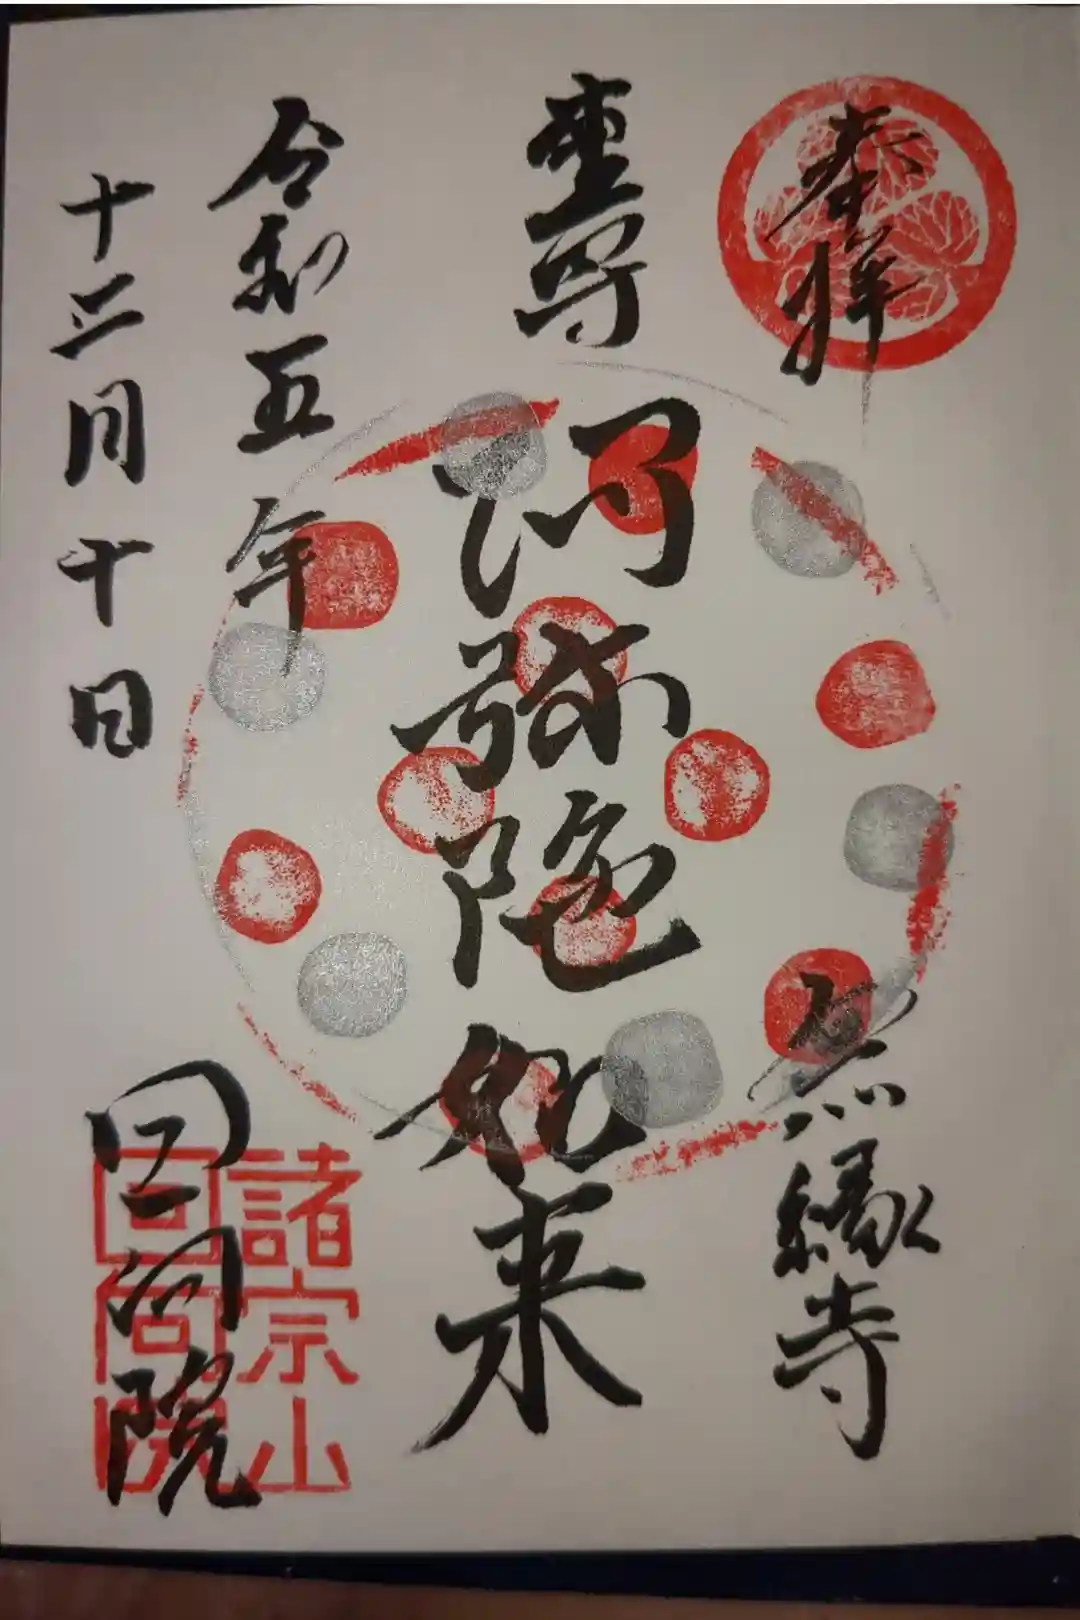 奉拝
無縁寺
阿弥陀如来
令和五年
十二月十日
回向院
諸宗山
回向院